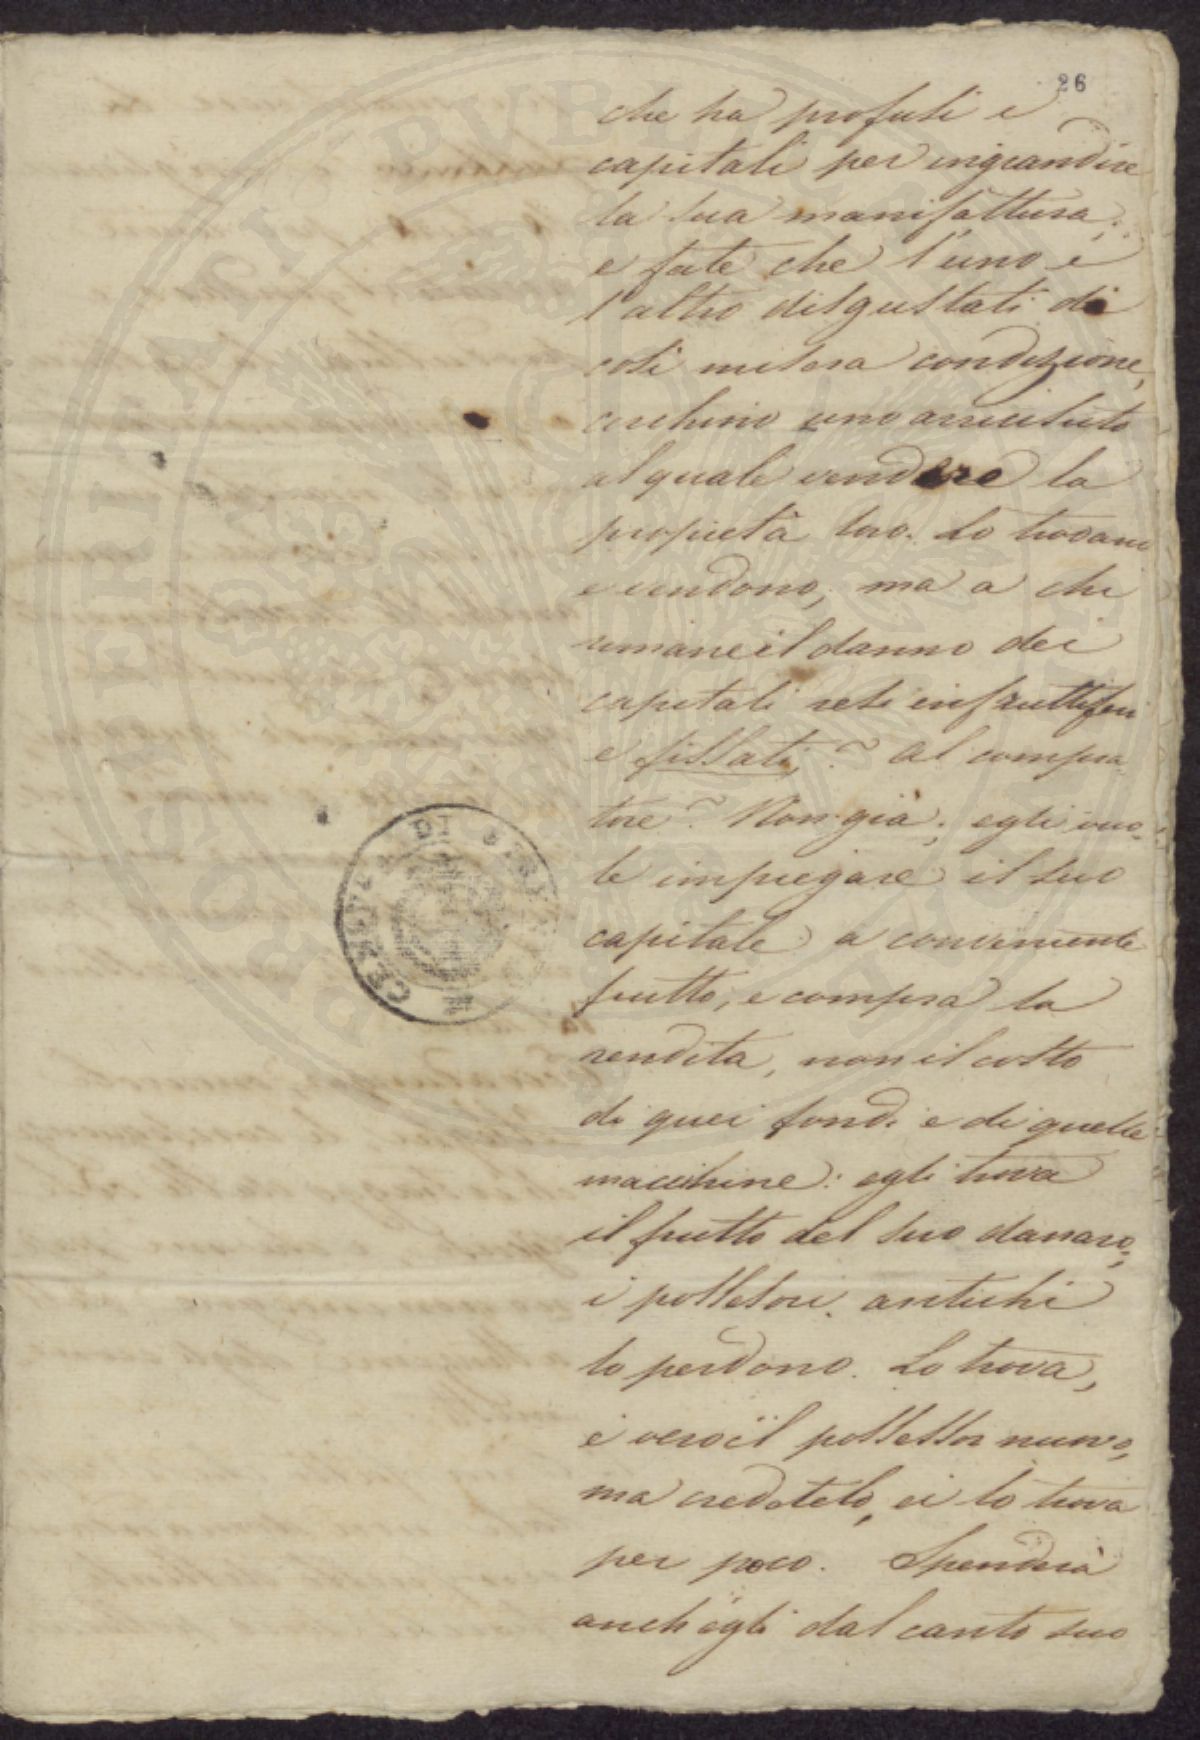 26
che ha profusi i
capitali per ingrandire
la sua manifattura;
e fate che l'uno e
l'altro disgustati di
così misera condizione,
cerchino uno arricchito
al quale vendere la
proprietà loro. Lo trovano
e vendono; ma a chi
rimane il danno dei
capitali resi infruttiferi
e fissati? Al compra-
tore? Non già; egli vuo-
le impiegare il suo
capitale a conveniente
frutto, e compra la
rendita, non il costo
di quei fondi e di quelle
macchine: egli trova
il frutto del suo danaro;
i possessori antichi
lo perdono. Lo trova,
è vero il possessor nuovo,
ma credetelo, ei lo trova
per poco. Spenderà
anch'egli dal canto suo
PROSPERITATI PVBLICAE
CENSURA DI